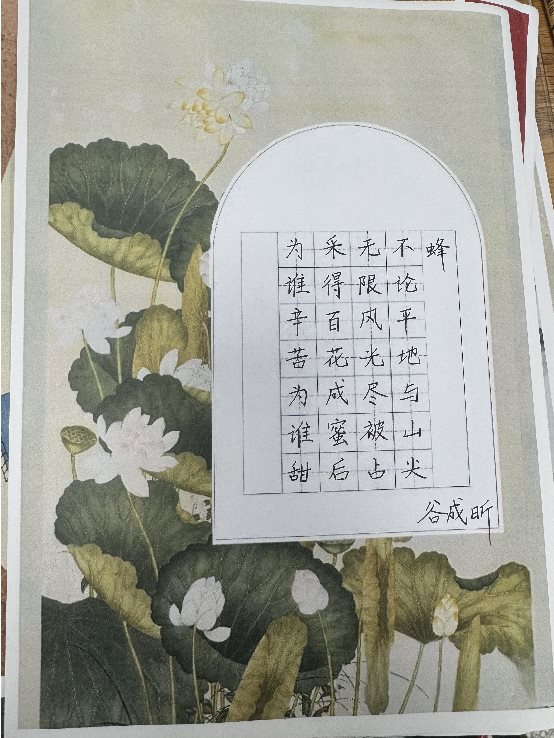 蜂
不论平地与山尖
无限风光尽被占
采得百花成蜜后
为谁辛苦为谁甜
谷成昕